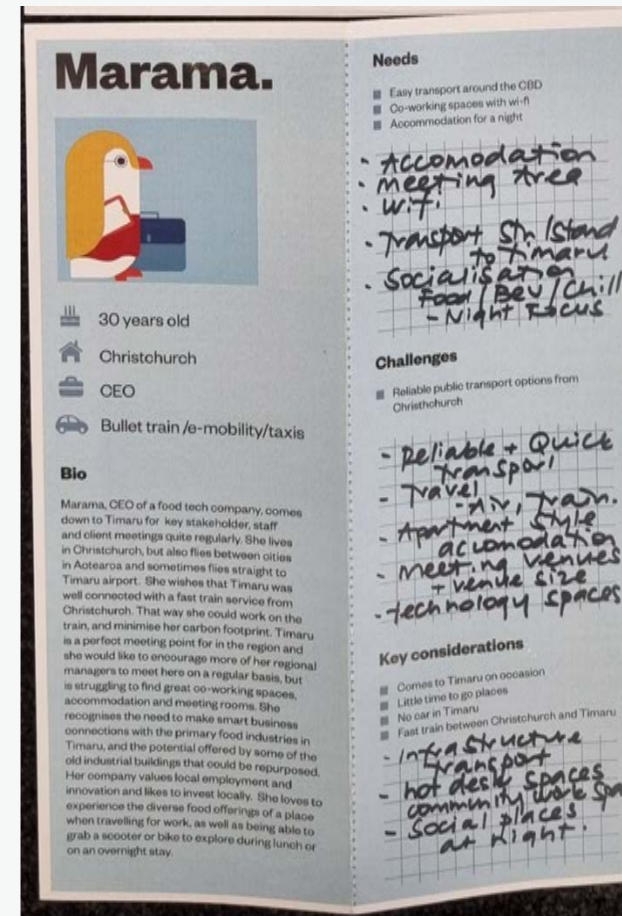 Marama.
30 years old
Christchurch
CEO
Bullet train/e-mobility/taxis
Bio
Marama, CEO of a food tech company, comes
down to Timaru for key stakeholder, staff
and client meetings quite regularly. She lives
in Christchurch, but also flies between cities
in Aotearoa and sometimes flies straight to
Timaru airport. She wishes that Timaru was
well connected with a fast train service from
Christchurch. That way she could work on the
train, and minimise her carbon footprint. Timaru
is a perfect meeting point for in the region and
she would like to encourage more of her regional
managers to meet here on a regular basis, but
is struggling to find great co-working spaces,
accommodation and meeting rooms. She
recognises the need to make smart business
connections with the primary food industries in
Timaru, and the potential offered by some of the
old industrial buildings that could be repurposed.
Her company values local employment and
innovation and likes to invest locally. She loves to
experience the diverse food offerings of a place
when travelling for work, as well as being able to
grab a scooter or bike to explore during lunch or
on an overnight stay.
Needs
Easy transport around the CBD
Co-working spaces with wi-fi
Accommodation for a night
- Accomodation
- Meeting Area
- Wifi
- Transport Stn/Stand
to Timaru
- Socialisation
Food/Bev/Chill
- Night Focus
Challenges
Reliable public transport options from
Christhchurch
- Reliable + Quick
transport
- Travel
- Air, Train.
- Apartment Style
accomodation
- Meeting venues
+ venue size
- technology spaces
Key considerations
Comes to Timaru on occasion
Little time to go places
No car in Timaru
Fast train between Christchurch and Timaru
- Infrastructure
transport
- hot desk spaces
community work spa
- Social places
at night.